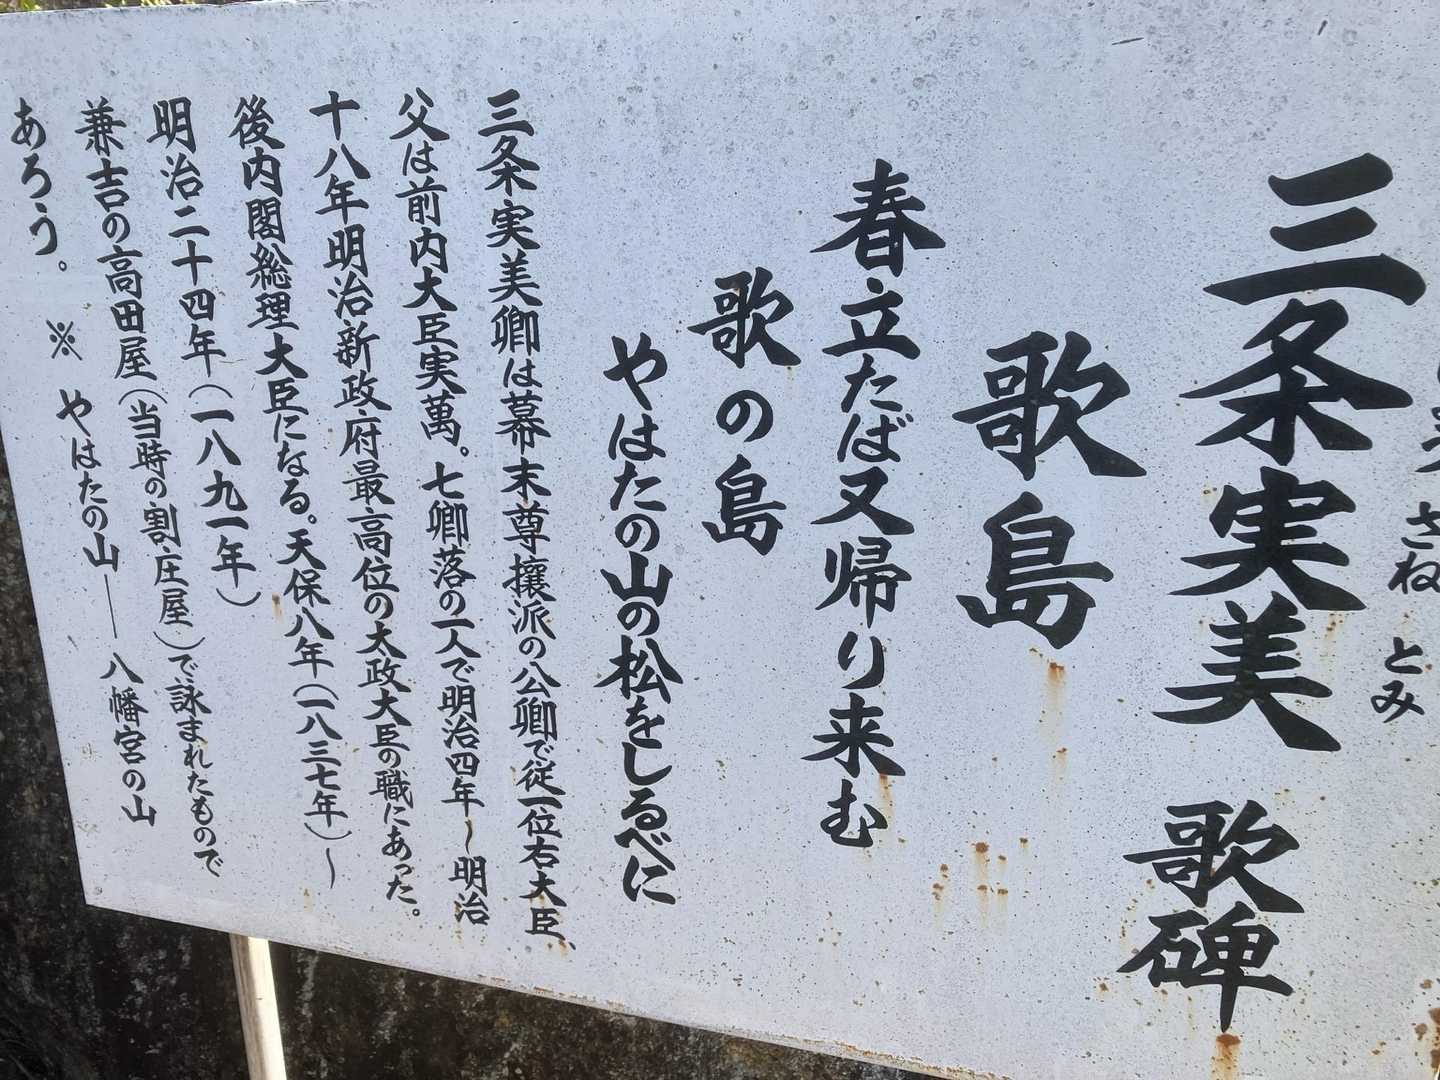 さね とみ
三条実美 歌碑
歌島
春立たば又帰り来む
歌の島
やはたの山の松をしるべに
三条実美卿は幕末尊攘派の公卿で従一位右大臣、
父は前内大臣実萬。七卿落の一人で明治四年~明治
十八年明治新政府最高位の太政大臣の職にあった。
後内閣総理大臣になる。天保八年(一八三七年)~
明治二十四年(一八九一年)
兼吉の高田屋(当時の割庄屋)で詠まれたもので
あろう。 ※ やはたの山——八幡宮の山